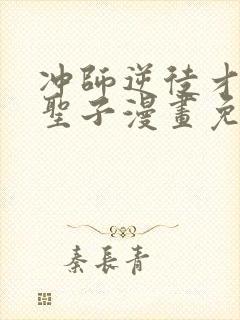 冲師逆徒才
聖子漫畫免
秦長青